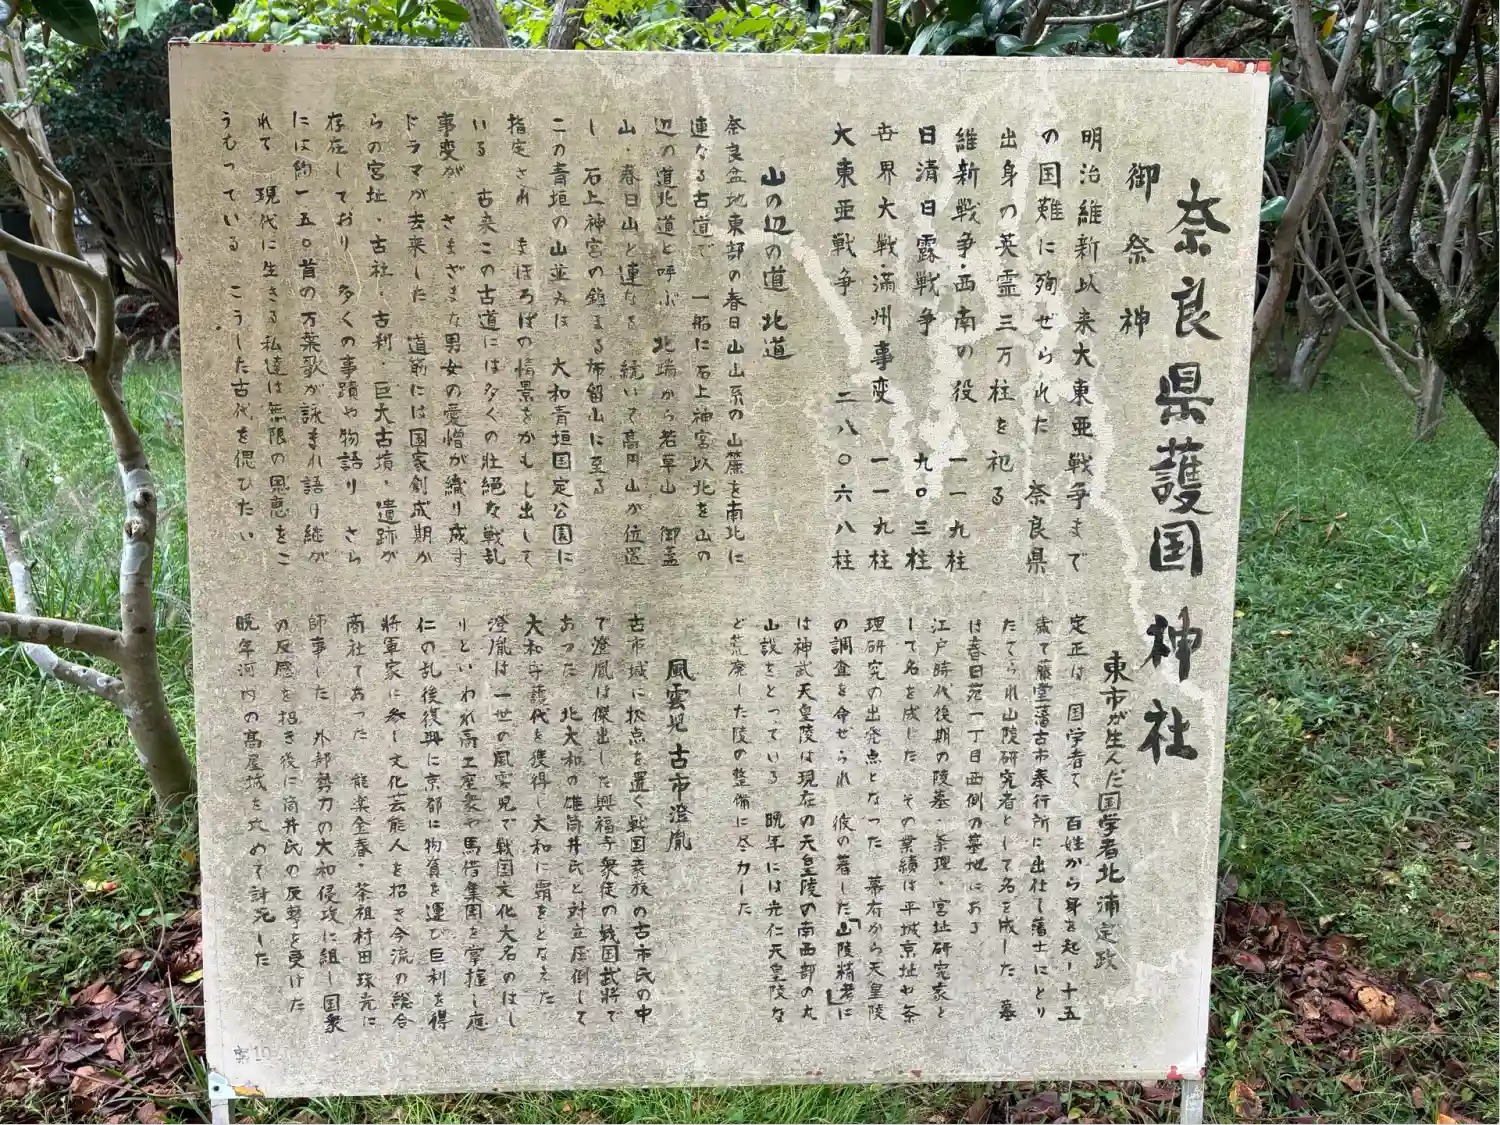 奈良県護国神社
御祭神
明治維新以来大東亜戦争まで
の国難に殉ぜられた 奈良県
出身の英霊三万柱を祀る
維新戦争・西南の役 一一九柱
日清日露戦争 九〇三柱
世界大戦満州事変 一一九柱
大東亜戦争 二八〇六八柱
山の辺の道 北道
奈良盆地東部の春日山山系の山麓を南北に
連なる古道で 一般に石上神宮以北を山の
辺の道北道と呼ぶ 北端から若草山 御蓋
山・春日山と連なる 続いて高円山が位置
し 石上神宮の鎮まる布留山に至る
この青垣の山並みは 大和青垣国定公園に
指定され まほろばの情景をかもし出して
いる 古来この古道には多くの壮絶な戦乱
事変が さまざまな男女の愛憎が織り成す
ドラマが去来した 道筋には国家創成期か
らの宮址・古社・古刹・巨大古墳・遺跡が
存在しており 多くの事蹟や物語り さら
には約一五〇首の万葉歌が詠まれ語り継が
れて 現代に生きる私達は無限の恩恵をこ
うむっている こうした古代を偲びたい
東市が生んだ国学者北浦定政
定正は 国学者で 百姓から身を起し十五
歳で藤堂藩古市奉行所に出仕し藩士にとり
たてられ山陵研究者として名を成した 墓
は春日苑一丁目西側の墓地にある
江戸時代後期の陵墓・条理・宮址研究家と
して名を成した その業績は平城京址や条
理研究の出発点となった 幕府から天皇陵
の調査を命ぜられ 彼の著した「山陵精考」に
は神武天皇陵は現在の天皇陵の南西部の丸
山説をとっている 晩年には光仁天皇陵な
ど荒廃した陵の整備に尽力した
風雲児 古市澄胤
古市城に拠点を置く戦国豪族の古市氏の中
で澄胤は傑出した興福寺衆徒の戦国武将で
あった 北大和の雄筒井氏と対立圧倒して
大和守護代を獲得し大和に覇をとなえた
澄胤は一世の風雲児で戦国文化大名のはし
りといわれ高工座衆や馬借集団を掌握し応
仁の乱後復興に京都に物資を運び巨利を得
将軍家に参し文化芸能人を招き今流の総合
商社であった 能楽金春・茶祖村田珠光に
師事した 外部勢力の大和侵攻に組し国衆
の反感を招き後に筒井氏の反撃を受けた
晩年河内の高屋城を攻めて討死した